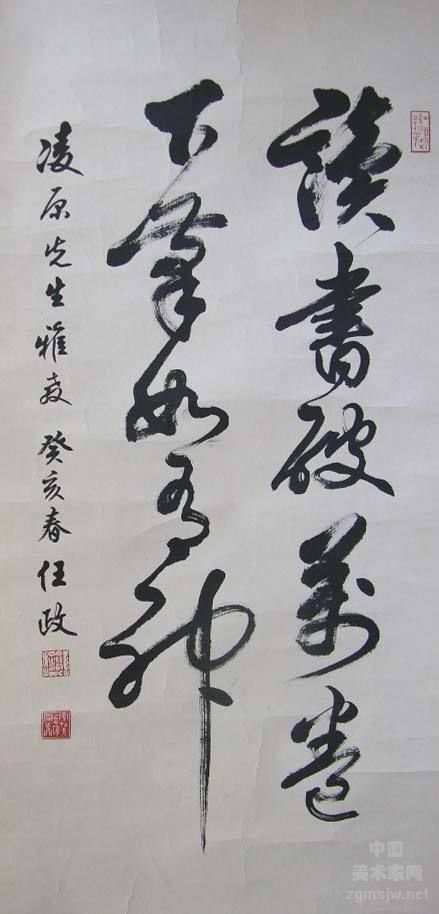 讀書破萬卷
下筆如有神
凌原先生雅教 癸亥春 任政
中國
美术家网
zgmsjw.net